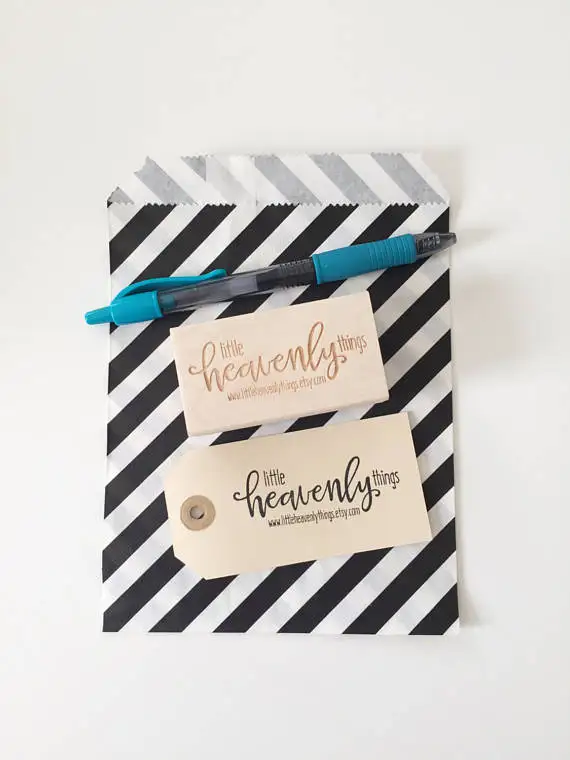 little
heavenly things
www.littleheavenlythings.etsy.com
little
heavenly things
www.littleheavenlythings.etsy.com